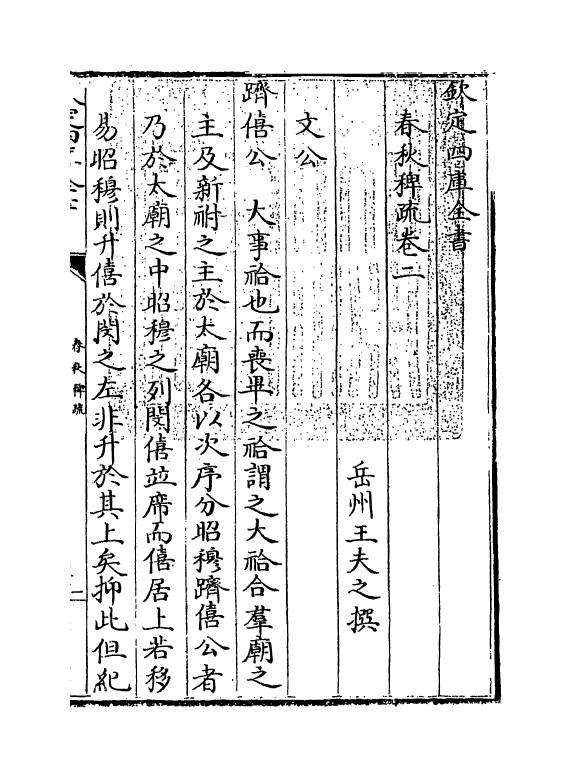 欽定四庫全書
春秋稗疏卷二
岳州王夫之撰
文公
躋僖公　大事祫也而喪畢之祫謂之大祫合羣廟之
主及新祔之主於太廟各以次序分昭穆躋僖公者
乃於太廟之中昭穆之列閔僖並席而僖居上若移
易昭穆則升僖於閔之左非升於其上矣抑此但紀
春秋稗疏